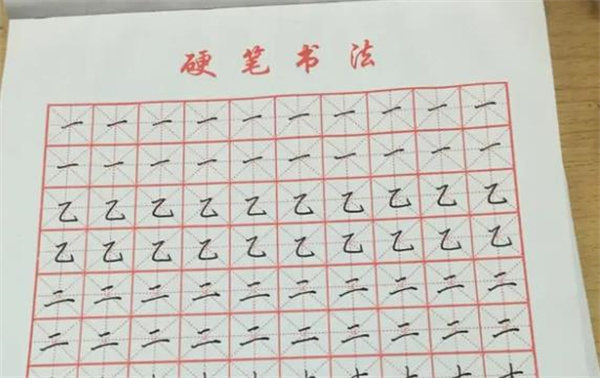 硬笔书法
一一一一一一一一一一
一一一一一一一一一一
乙乙乙乙乙乙乙乙乙乙
乙乙乙乙乙乙乙乙乙乙
二二二二二二二二二二
二二二二二二二二二二